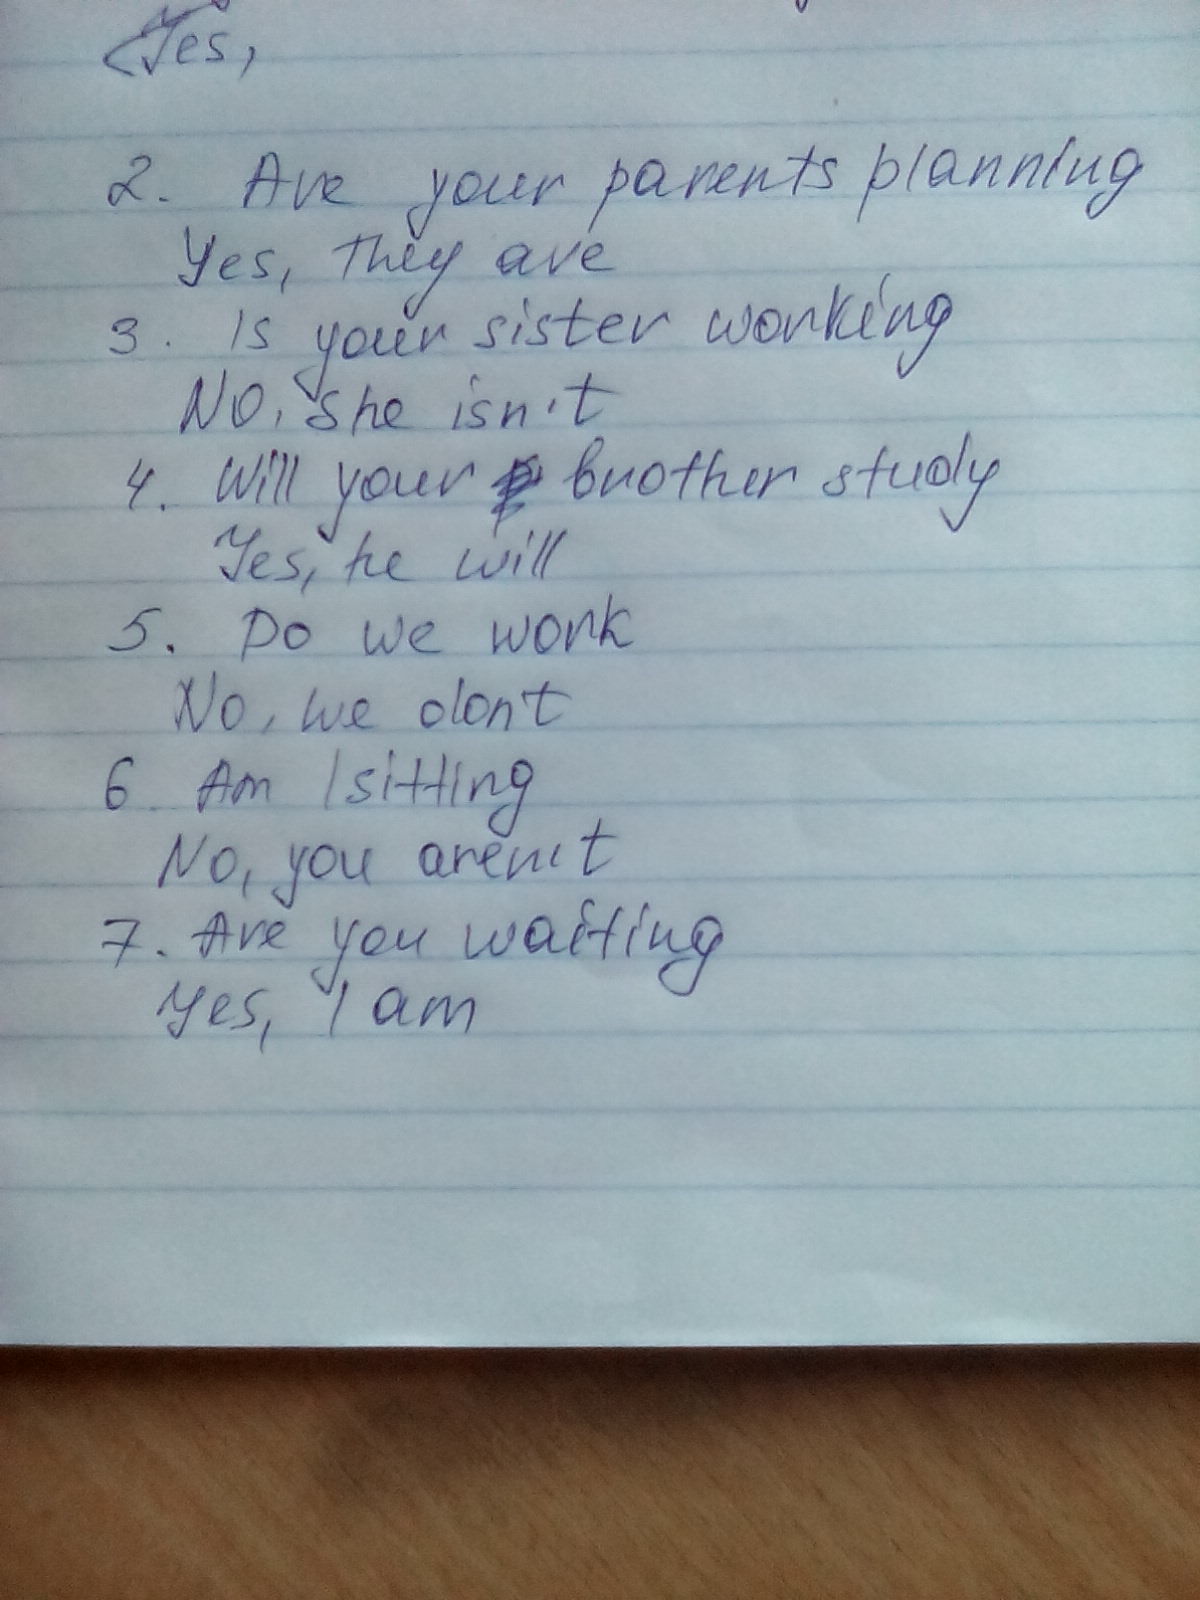 Yes,
2. Are your parents planning
Yes, they are
3. Is your sister working
No, she isn't
4. Will your brother study
Yes, he will
5. Do we work
No, we don't
6. Am I sitting
No, you aren't
7. Are you waiting
Yes, I am